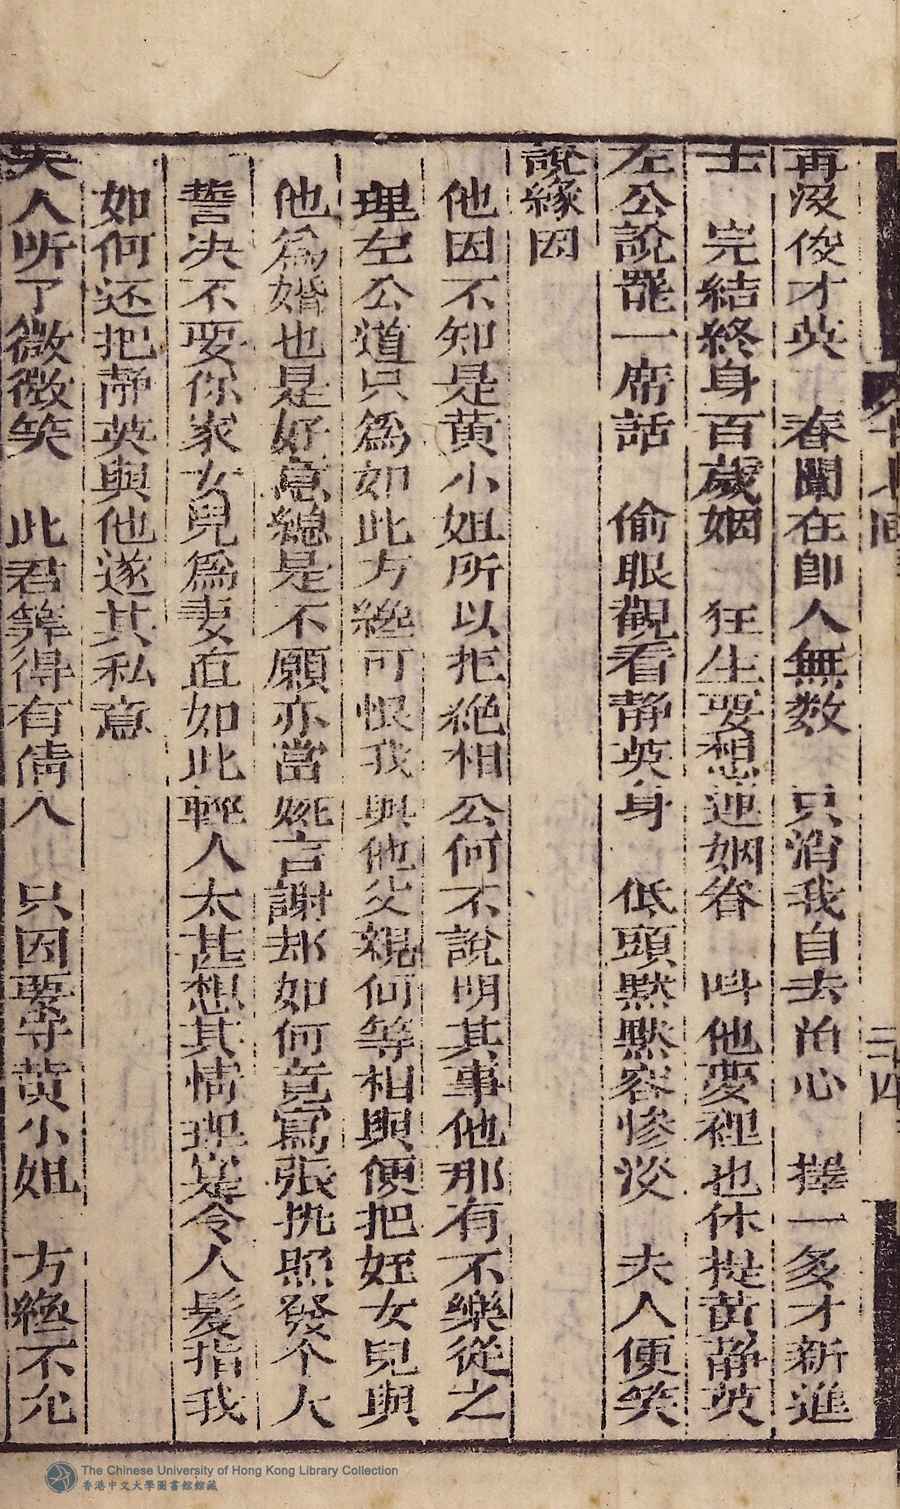 再沒俊才英 春闈在卽人無数 只消我自去畄心 擇一多才新進
士 完結終身百歲姻 狂生要想連姻眷 呌他夢裡也休提黄静英
左公說罷一席話 偷眼觀看静英身 低頭黙黙容慘淡 夫人便笑
說緣因
他因不知是黄小姐所以拒絶相公何不說明其事他那有不樂從之
理左公道只爲如此方纔可恨我與他父親何等相與便把姪女兒與
他爲婚也是好意總是不願亦當婉言謝却如何竟寫張执照發个大
誓决不要你家女兒爲妻直如此輕人太甚想其情理寔令人髮指我
如何还把静英與他遂其私意
夫人听了微微笑 此君算得有情人 只因要守黄小姐 方纔不允
十七囘
三十四
The Chinese University of Hong Kong Library Collection
香港中文大學圖書館館藏